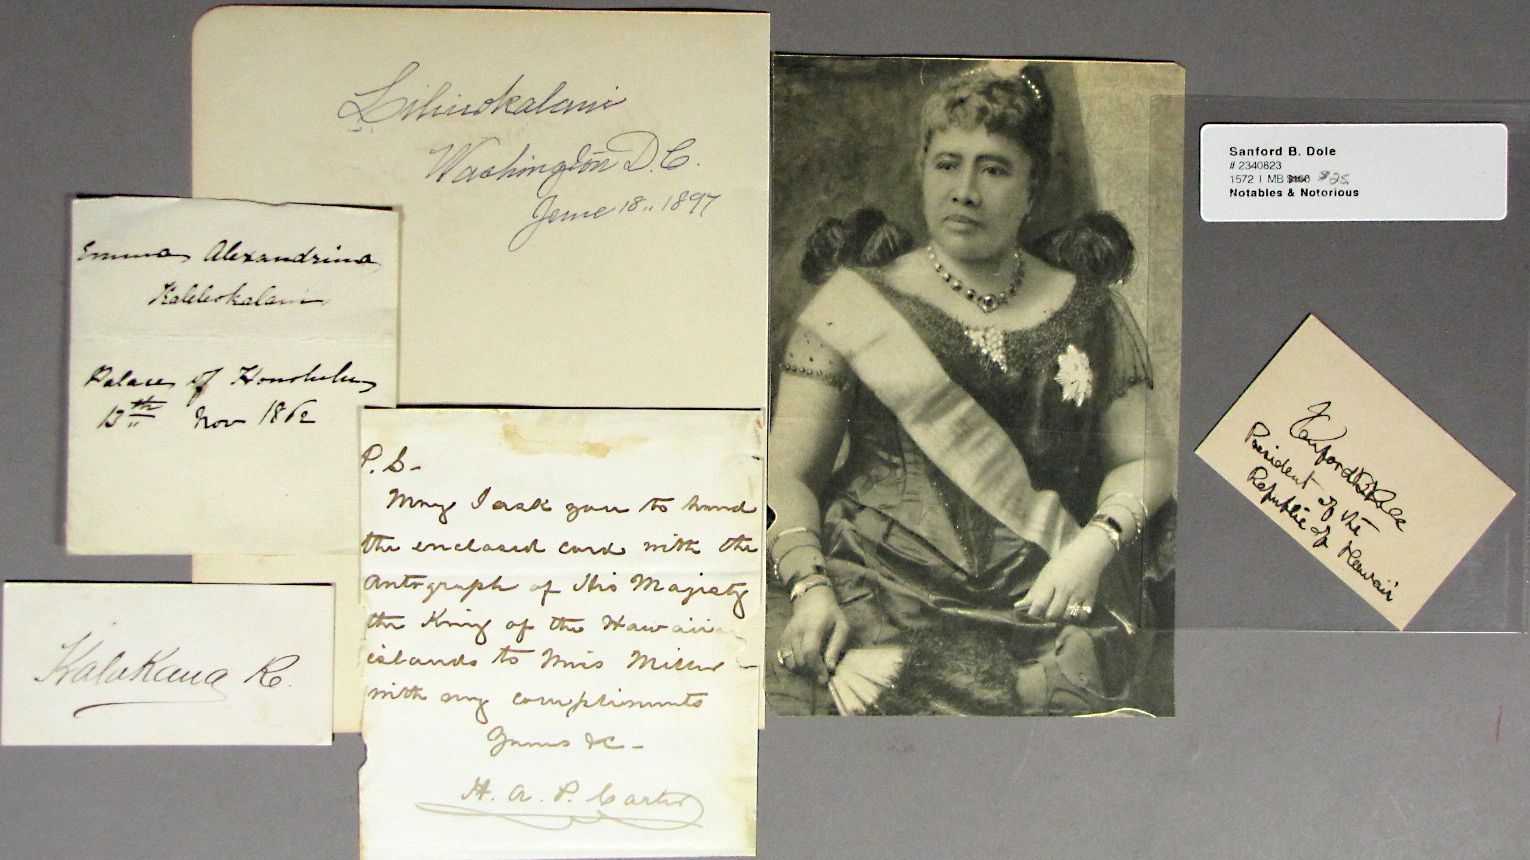 Liliuokalani
Washington D.C.
June 18.. 1897
Emma Alexandrina
Kaleleokalani
Palace of Honolulu
13th Nov 1862
Kalakaua R.
P.S-
May I ask you to hand
the enclosed card with the
autograph of His Majesty
the King of the Hawaiian
islands to Miss Miller -
with my compliments
Yours &c -
H. A. P. Carter
Sanford B. Dole
# 2340823
1572 I MB $25.
Notables & Notorious
Sanford B. Dole
President of the
Republic of Hawaii